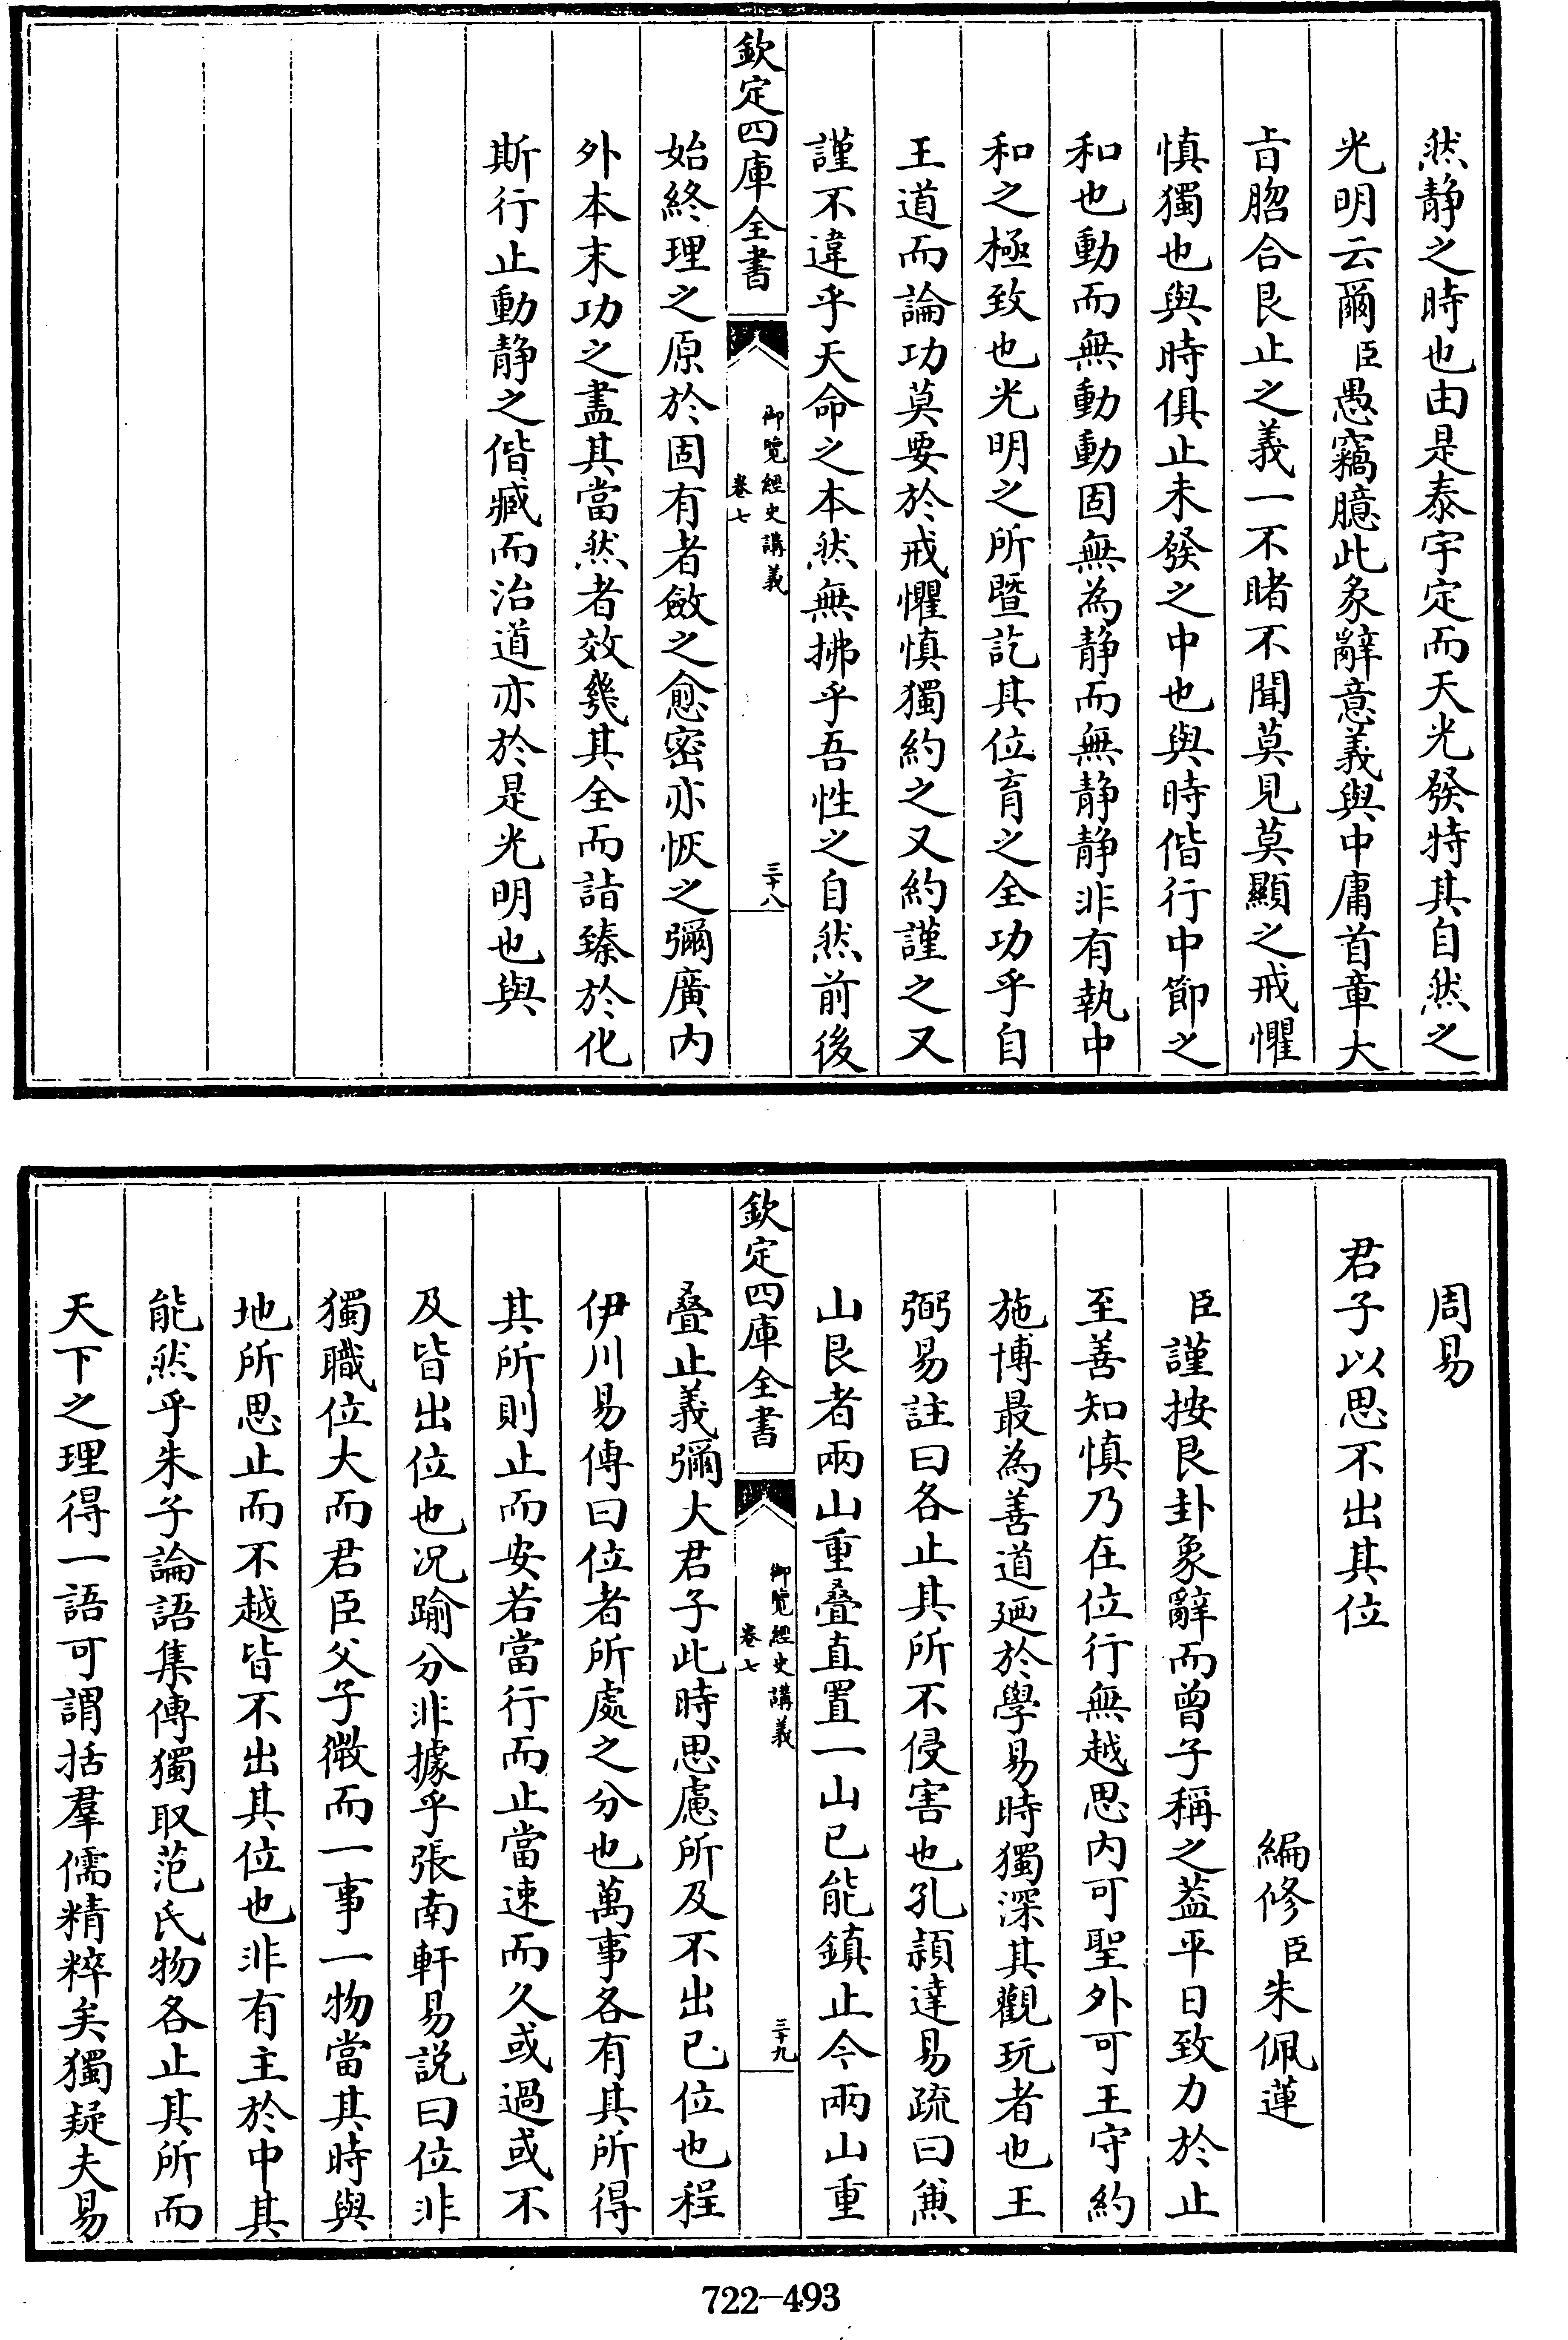 然静之時也由是泰宇定而天光發特其自然之
光明云爾臣愚竊臆此彖辭意義與中庸首章大
旨脗合艮止之義一不睹不聞莫見莫顯之戒懼
慎獨也與時俱止未發之中也與時偕行中節之
和也動而無動動固無為静而無静静非有執中
和之極致也光明之所暨訖其位育之全功乎自
王道而論功莫要於戒懼慎獨約之又約謹之又
謹不違乎天命之本然無拂乎吾性之自然前後
欽定四庫全書
御覽經史講義
卷七
三十八
始終理之原於固有者斂之愈密亦恢之彌廣内
外本末功之盡其當然者效幾其全而詣臻於化
斯行止動静之偕臧而治道亦於是光明也與
周易
君子以思不出其位
編修臣朱佩蓮
臣謹按艮卦象辭而曾子稱之葢平日致力於止
至善知慎乃在位行無越思内可聖外可王守約
施博最為善道廼於學易時獨深其觀玩者也王
弼易註曰各止其所不侵害也孔頴達易疏曰兼
山艮者兩山重疊直置一山已能鎮止今兩山重
欽定四庫全書
御覽經史講義
卷七
三十九
疊止義彌大君子此時思慮所及不出已位也程
伊川易傳曰位者所處之分也萬事各有其所得
其所則止而安若當行而止當速而久或過或不
及皆出位也况踰分非據乎張南軒易説曰位非
獨職位大而君臣父子微而一事一物當其時與
地所思止而不越皆不出其位也非有主於中其
能然乎朱子論語集傳獨取范氏物各止其所而
天下之理得一語可謂括羣儒精粹矣獨疑夫易
722-493